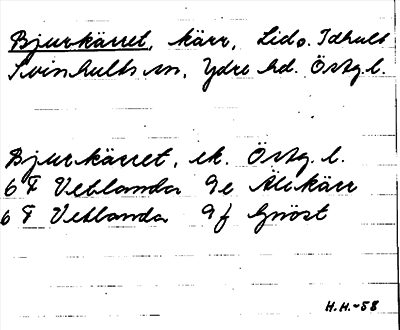 Bjurkärret, kärr, Lid o. Idhult
Svinhults sn, Ydre hd. Östg. l.
Bjurkärret, ek. Östg. l.
6 F Vetlanda 9e Älikärr
6 F Vetlanda 9f Gnöst
H.H.-58